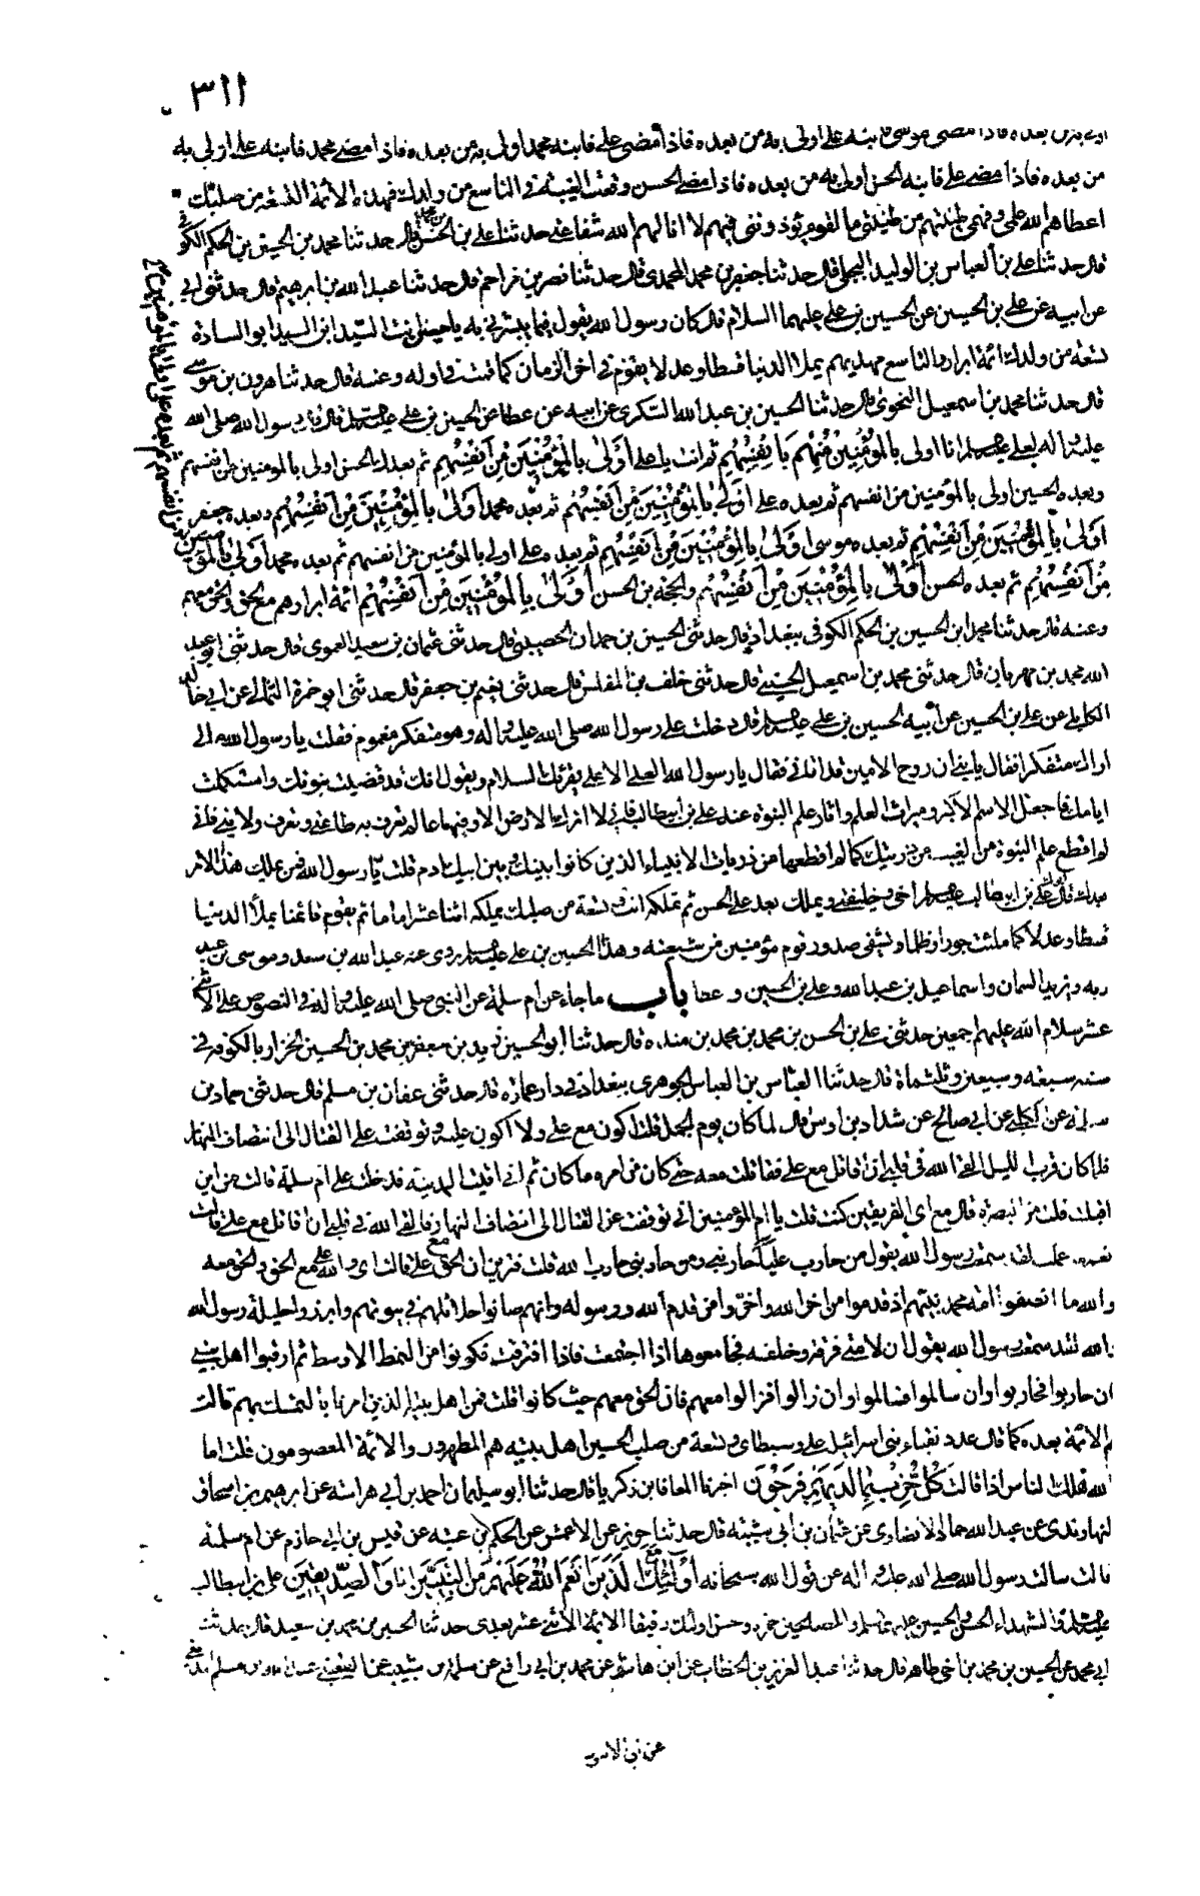 ٣١١
بعده فاذا مضى موسى فابنه على اولى به من بعده فاذا مضى على فابنه محمد اولى به من بعده فاذا مضى محمد فابنه على اولى به
من بعده فاذا مضى على فابنه الحسن اولى به من بعده فاذا مضى الحسن وقعت الغيبة فى التاسع من ولدك فهذه الائمة التسعة من صلبك
اعطاهم الله علمى وفهمى طينتهم من طينتى ما لقوم يؤذوننى فيهم لا انالهم الله شفاعتى حدثنا على بن الحسن قال حدثنا محمد بن الحسين بن الحكم الكوفى
قال حدثنا على بن العباس بن الوليد البجلى قال حدثنا جعفر بن محمد المحمدى قال حدثنا نصر بن مزاحم قال حدثنا عبد الله بن ابرهيم قال حدثنى ابى
عن ابيه عن على بن الحسين عن الحسين بن على عليهما السلام قال كان رسول الله يقول فيما يبشرنى به يا حسين انت السيد ابن السيد ابو السادة
تسعة من ولدك ائمة ابرار والتاسع مهديهم يملا الدنيا قسطا وعدلا يقوم فى اخر الزمان كما قمت فى اوله وعنه قال حدثنا هرون بن موسى
قال حدثنا محمد بن اسمعيل النحوى قال حدثنا الحسين بن عبد الله السكرى عن ابيه عن عطا عن الحسين بن على قال قال رسول الله صلى الله
عليه واله لعلى انا اولى بالمؤمنين منهم بانفسهم ثم انت يا على اولى بالمؤمنين من انفسهم ثم بعدك الحسن اولى بالمؤمنين من انفسهم
وبعده الحسين اولى بالمؤمنين من انفسهم ثم بعده على اولى بالمؤمنين من انفسهم ثم بعده محمد اولى بالمؤمنين من انفسهم وبعده جعفر
اولى بالمؤمنين من انفسهم ثم بعده موسى اولى بالمؤمنين من انفسهم ثم بعده على اولى بالمؤمنين من انفسهم ثم بعده محمد اولى بالمؤمنين
من انفسهم ثم بعده الحسن اولى بالمؤمنين من انفسهم والحجة بن الحسن اولى بالمؤمنين من انفسهم ائمة ابرار هم مع الحق والحق معهم
وعنه قال حدثنا محمد ابن الحسين بن الحكم الكوفى ببغداد قال حدثنى الحسين بن حمدان الخصيبى قال حدثنى عثمان بن سعيد العموى قال حدثنى ابو عبد
الله محمد بن مهران قال حدثنى محمد بن اسمعيل الحسنى قال حدثنى خلف بن المفلس قال حدثنى نعيم بن جعفر قال حدثنى ابو حمزة الثمالى عن ابى خالد
الكابلى عن على بن الحسين عن ابيه الحسين بن على قال دخلت على رسول الله صلى الله عليه واله وهو متفكر مغموم فقلت يا رسول الله مالى
اراك متفكرا فقال يا بنى ان روح الامين قد اتانى فقال يا رسول الله العلى الاعلى يقرئك السلام ويقول لك قد قضيت نبوتك واستكملت
ايامك فاجعل الاسم الاكبر وميراث العلم واثار علم النبوة عند على بن ابيطالب فانى لا اترك الارض الا وفيها عالم تعرف به طاعتى وتعرف ولايتى فانى
لم اقطع علم النبوة من الغيب من ذريتك كما لم اقطعها من ذريات الانبياء الذين كانوا بينك وبين ابيك ادم قلت يا رسول الله فمن يملك هذا الامر
بعدك قال على بن ابى طالب اخى وخليفتى ويملك بعد على الحسن ثم تملكه انت وتسعة من صلبك يملكه اثنا عشر اماما ثم يقوم قائمنا يملأ الدنيا
قسطا وعدلا كما ملئت جورا وظلما ويشفى صدور قوم مؤمنين من شيعته وهذا الحسين بن على روى عنه عبد الله بن سعد وموسى بن عبد
ربه وزيد السمان واسماعيل بن عبد الله وعلى بن الحسين وعطا باب ما جاء عن ام سلمة عن النبى صلى الله عليه واله فى النصوص على الاثنى
عشر سلام الله عليهم اجمعين حدثنى على بن الحسن بن محمد بن محمد بن منده قال حدثنا ابو الحسين زيد بن جعفر بن محمد بن الحسين الخزاز بالكوفة فى
سنة سبعة وسبعين وثلثماة قال حدثنا العباس بن العباس الجوهرى ببغداد فى دار عمارة قال حدثنى عفان بن مسلم قال حدثنى حماد بن
سلمة عن الكلبى عن ابى صالح عن شداد بن اوس قال لما كان يوم الجمل قلت اكون مع على ولا اكون عليه وتوقفت على القتال الى انتصاف النهار
فلما كان قرب الليل القى الله فى قلبى ان اقاتل مع على فقاتلت معه حتى كان من امره ما كان ثم انى اتيت المدينة فدخلت على ام سلمة قالت من اين
اقبلت قلت من البصرة قالت مع اى الفريقين كنت قلت يا ام المؤمنين انى توقفت عن القتال الى انتصاف النهار فالقى الله فى قلبى ان اقاتل مع على قالت
نعم ما عملت لقد سمعت رسول الله يقول من حارب عليا حاربنى ومن حاربنى حارب الله قلت فترين ان الحق مع على قالت اى والله على مع الحق والحق معه
والله ما انصفوا امة محمد نبيهم اذ قدموا من اخر الله واخروا من قدم الله ورسوله وانهم صانوا حلائلهم فى بيوتهم وابرزوا حليلة رسول الله
والله لقد سمعت رسول الله يقول ان لامتى فرقة وخلفة فجامعوها اذا اجتمعت فاذا افترقت فكونوا من النمط الاوسط ثم ارقبوا اهل بيتى
ان حاربوا فحاربوا وان سالموا فسالموا وان زالوا فزالوا معهم فان الحق معهم حيث كانوا قلت فمن اهل بيته الذين امرنا بالتمسك بهم قالت
هم الائمة بعده كما قال عدد نقباء بنى اسرائيل على وسبطاى وتسعة من صلب الحسين اهل بيته هم المطهرون والائمة المعصومون قلت اما
والله هلك الناس اذا قالت كل حزب بما لديهم فرحون اخبرنا المعافا بن زكريا قال حدثنا ابو سليمان احمد بن ابى هراسة عن ابرهيم بن اسحاق
النهاوندى عن عبد الله حماد الانصارى عن عثمان بن ابى شيبة قال حدثنا حريز عن الاعمش عن الحكم بن عتيبة عن قيس بن ابى حازم عن ام سلمة
قالت سالت رسول الله صلى الله عليه واله عن قول الله سبحانه اولئك مع الذين انعم الله عليهم من النبيين انا والصديقين على بن ابيطالب
والشهداء الحسن والحسين والصالحين حمزة وحسن اولئك رفيقا الائمة الاثنى عشر بعدى حدثنا الحسين بن محمد بن سعيد قال حدثنى
ابى محمد عن الحسين بن محمد بن اخى طاهر قال حدثنا عبد العزيز بن الخطاب عن ابن هاشم عن محمد بن ابى رافع عن سلمة بن شبيب عن القعنبى عبد الله بن مسلم المدنى
عن ابى الاسود